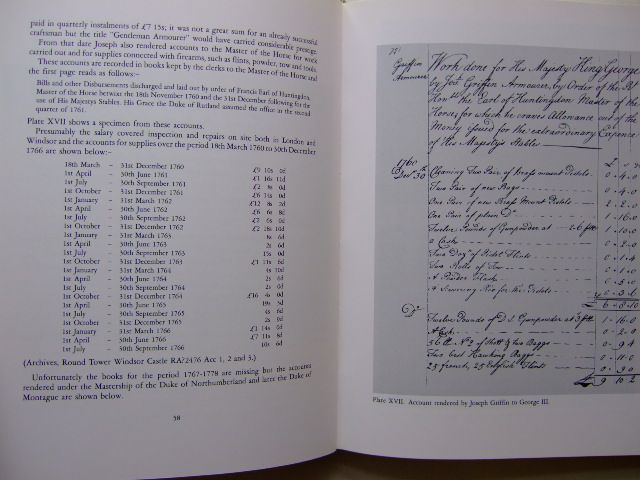 paid in quarterly instalments of £7 15s; it was not a great sum for an already successful
craftsman but the title "Gentleman Armourer" would have carried considerable prestige.
From that date Joseph also rendered accounts to the Master of the Horse for work
carried out and for supplies connected with firearms, such as flints, powder, tow and tools.
These accounts are recorded in books kept by the clerks to the Master of the Horse and
the first page reads as follows:-
Bills and other Disbursements discharged and laid out by order of Francis Earl of Huntingdon,
Master of the Horse betwixt the 18th November 1760 and the 31st December following for the
use of His Majestys Stables. His Grace the Duke of Rutland assumed the office in the second
quarter of 1761.
Plate XVII shows a specimen from these accounts.
Presumably the salary covered inspection and repairs on site both in London and
Windsor and the accounts for supplies over the period 18th March 1760 to 30th December
1766 are shown below:-
18th March – 31st December 1760 £9 10s 0d
1st April – 30th June 1761 £1 16s 11d
1st July – 30th September 1761 £2 8s 0d
1st October – 31st December 1761 £6 14s 0d
1st January – 31st March 1762 £12 8s 2d
1st April – 30th June 1762 £6 6s 8d
1st July – 30th September 1762 £7 6s 0d
1st October – 31st December 1762 £2 18s 10d
1st January – 31st March 1763 8s 6d
1st April – 30th June 1763 2s 6d
1st July – 30th September 1763 15s 0d
1st October – 31st December 1763 £1 11s 6d
1st January – 31st March 1764 4s 10d
1st April – 30th June 1764 2s 6d
1st July – 30th September 1764 2s 6d
1st October – 31st December 1764 £16 4s 0d
1st April – 30th June 1765 19s 5d
1st July – 30th September 1765 4s 6d
1st October – 31st December 1765 2s 9d
1st January – 31st March 1766 £1 14s 6d
1st April – 30th June 1766 £1 7s 6d
1st July – 30th September 1766 10s 6d
(Archives, Round Tower Windsor Castle RA?2476 Acc 1, 2 and 3.)
Unfortunately the books for the period 1767-1778 are missing but the accounts
rendered under the Mastership of the Duke of Northumberland and later the Duke of
Montague are shown below.
58
Griffin
Armourer
Work done for His Majesty King George
by Jos. Griffin Armourer, by Order of the
Earl of Huntingdon Master of the
Horse, for which he craves Allowance out of the
Money Issued for the extraordinary Expence
of His Majestys Stables
1760
Cleaning Two Pair of Brass mount Pistols 0 . 4 . 0
Two Pair of new Bags 0 . 4 . 0
One Pair of new Brass Mount Pistols 2 . 2 . 0
One Pair of plain D° 1 . 16 . 0
Twelve Pounds of Gunpowder at 2 . 6 1 . 10 . 0
a Cask 0 . 2 . 0
Two Doz of Pistol Flints 0 . 1 . 4
Two Rolls of Tow 0 . 1 . 0
A Powder Flask 0 . 5 . 0
for the Pistols
6 . 8 . 10
Twelve Pounds of Gunpowder at 3 1 . 16 . 0
A Cask 0 . 2 . 0
56 N° 2 of Shott & two Baggs 0 . 9 4
Two best Hawking Baggs 0 . 11 . 0
25 french, 25 English Flints
9 10 2
Plate XVII. Account rendered by Joseph Griffin to George III.